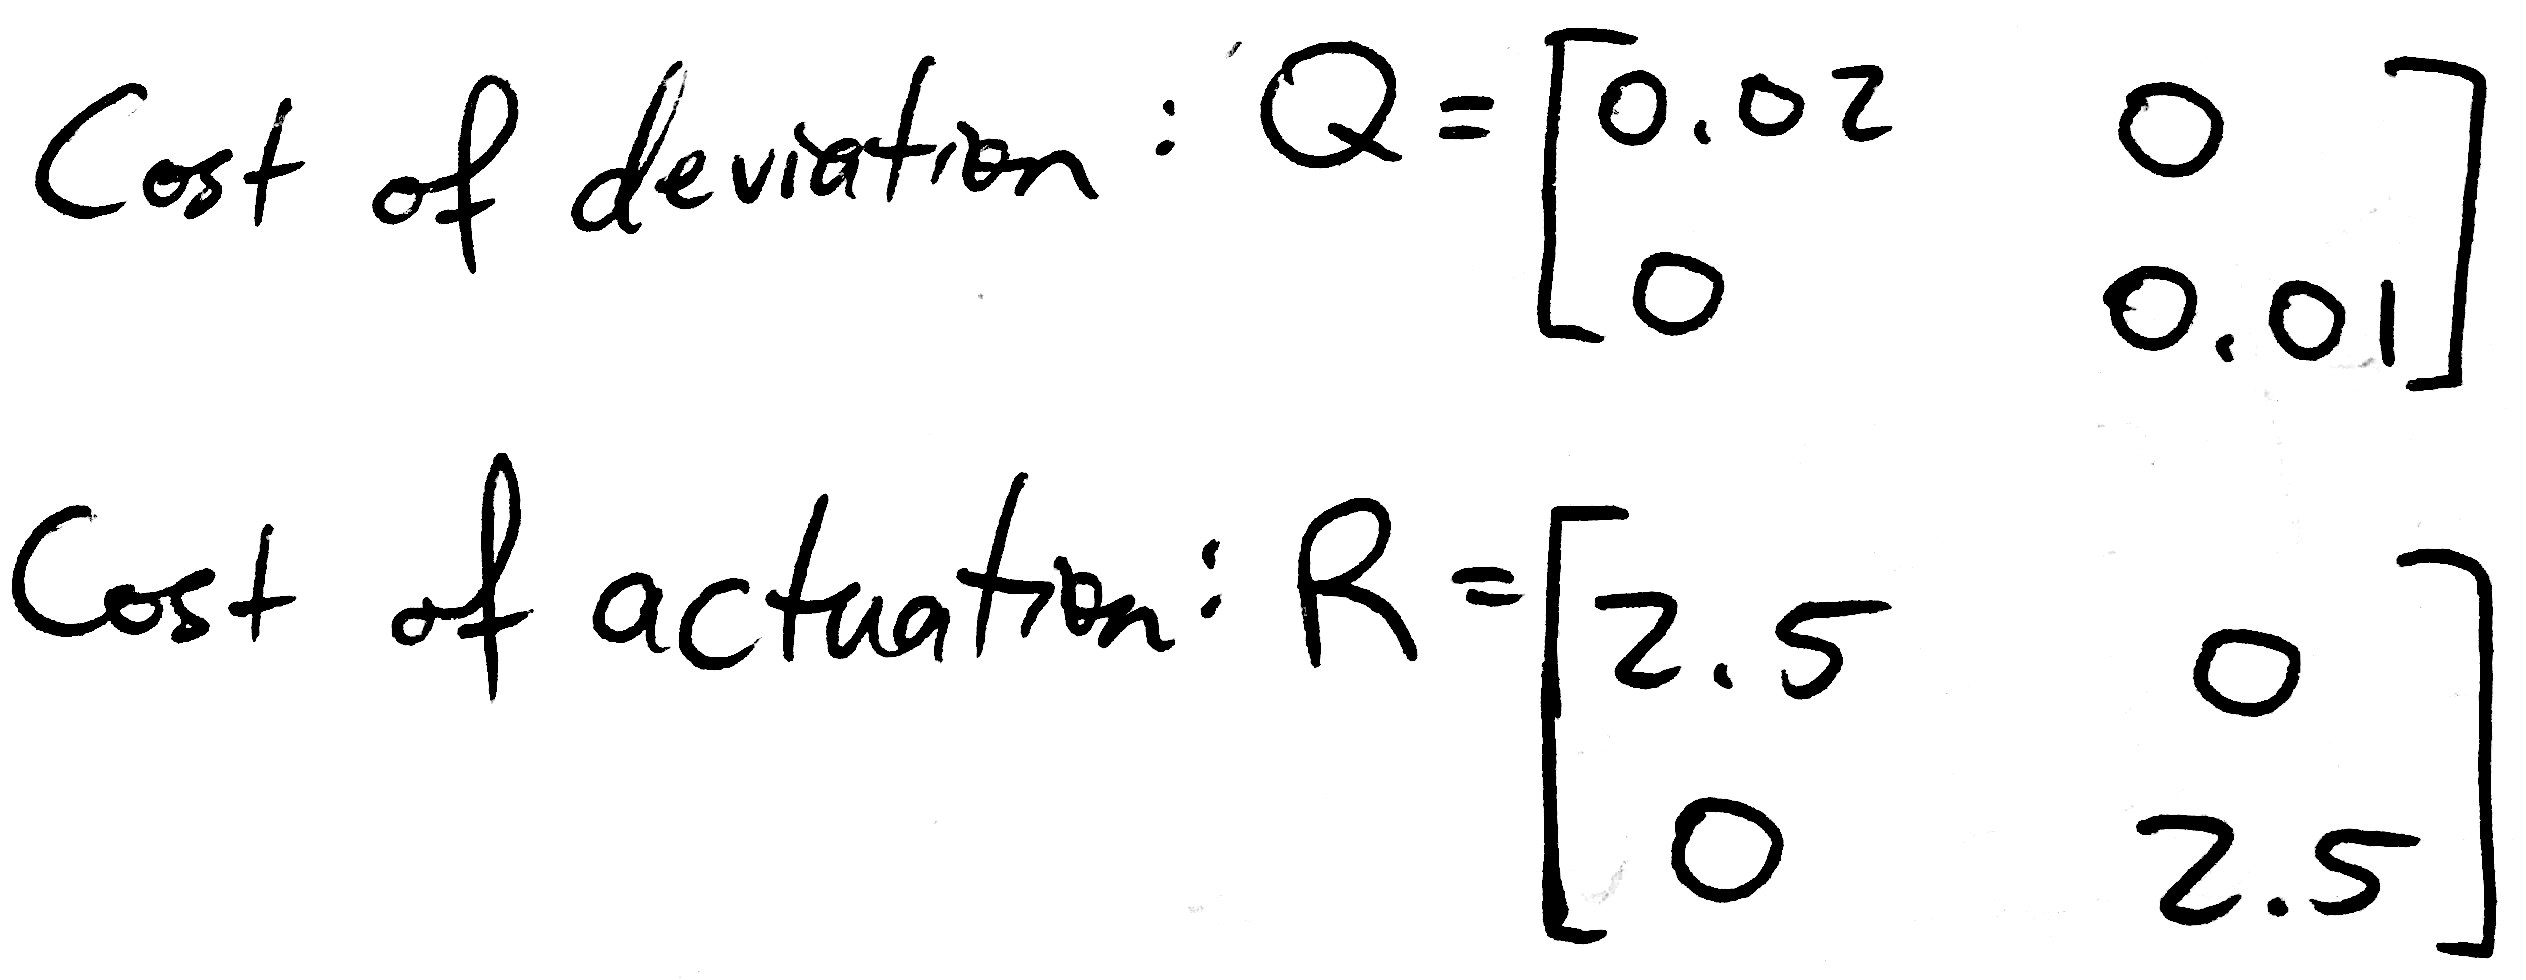 Cost of deviation : Q = [0.02 0
0 0.01]
Cost of actuation : R = [2.5 0
0 2.5]